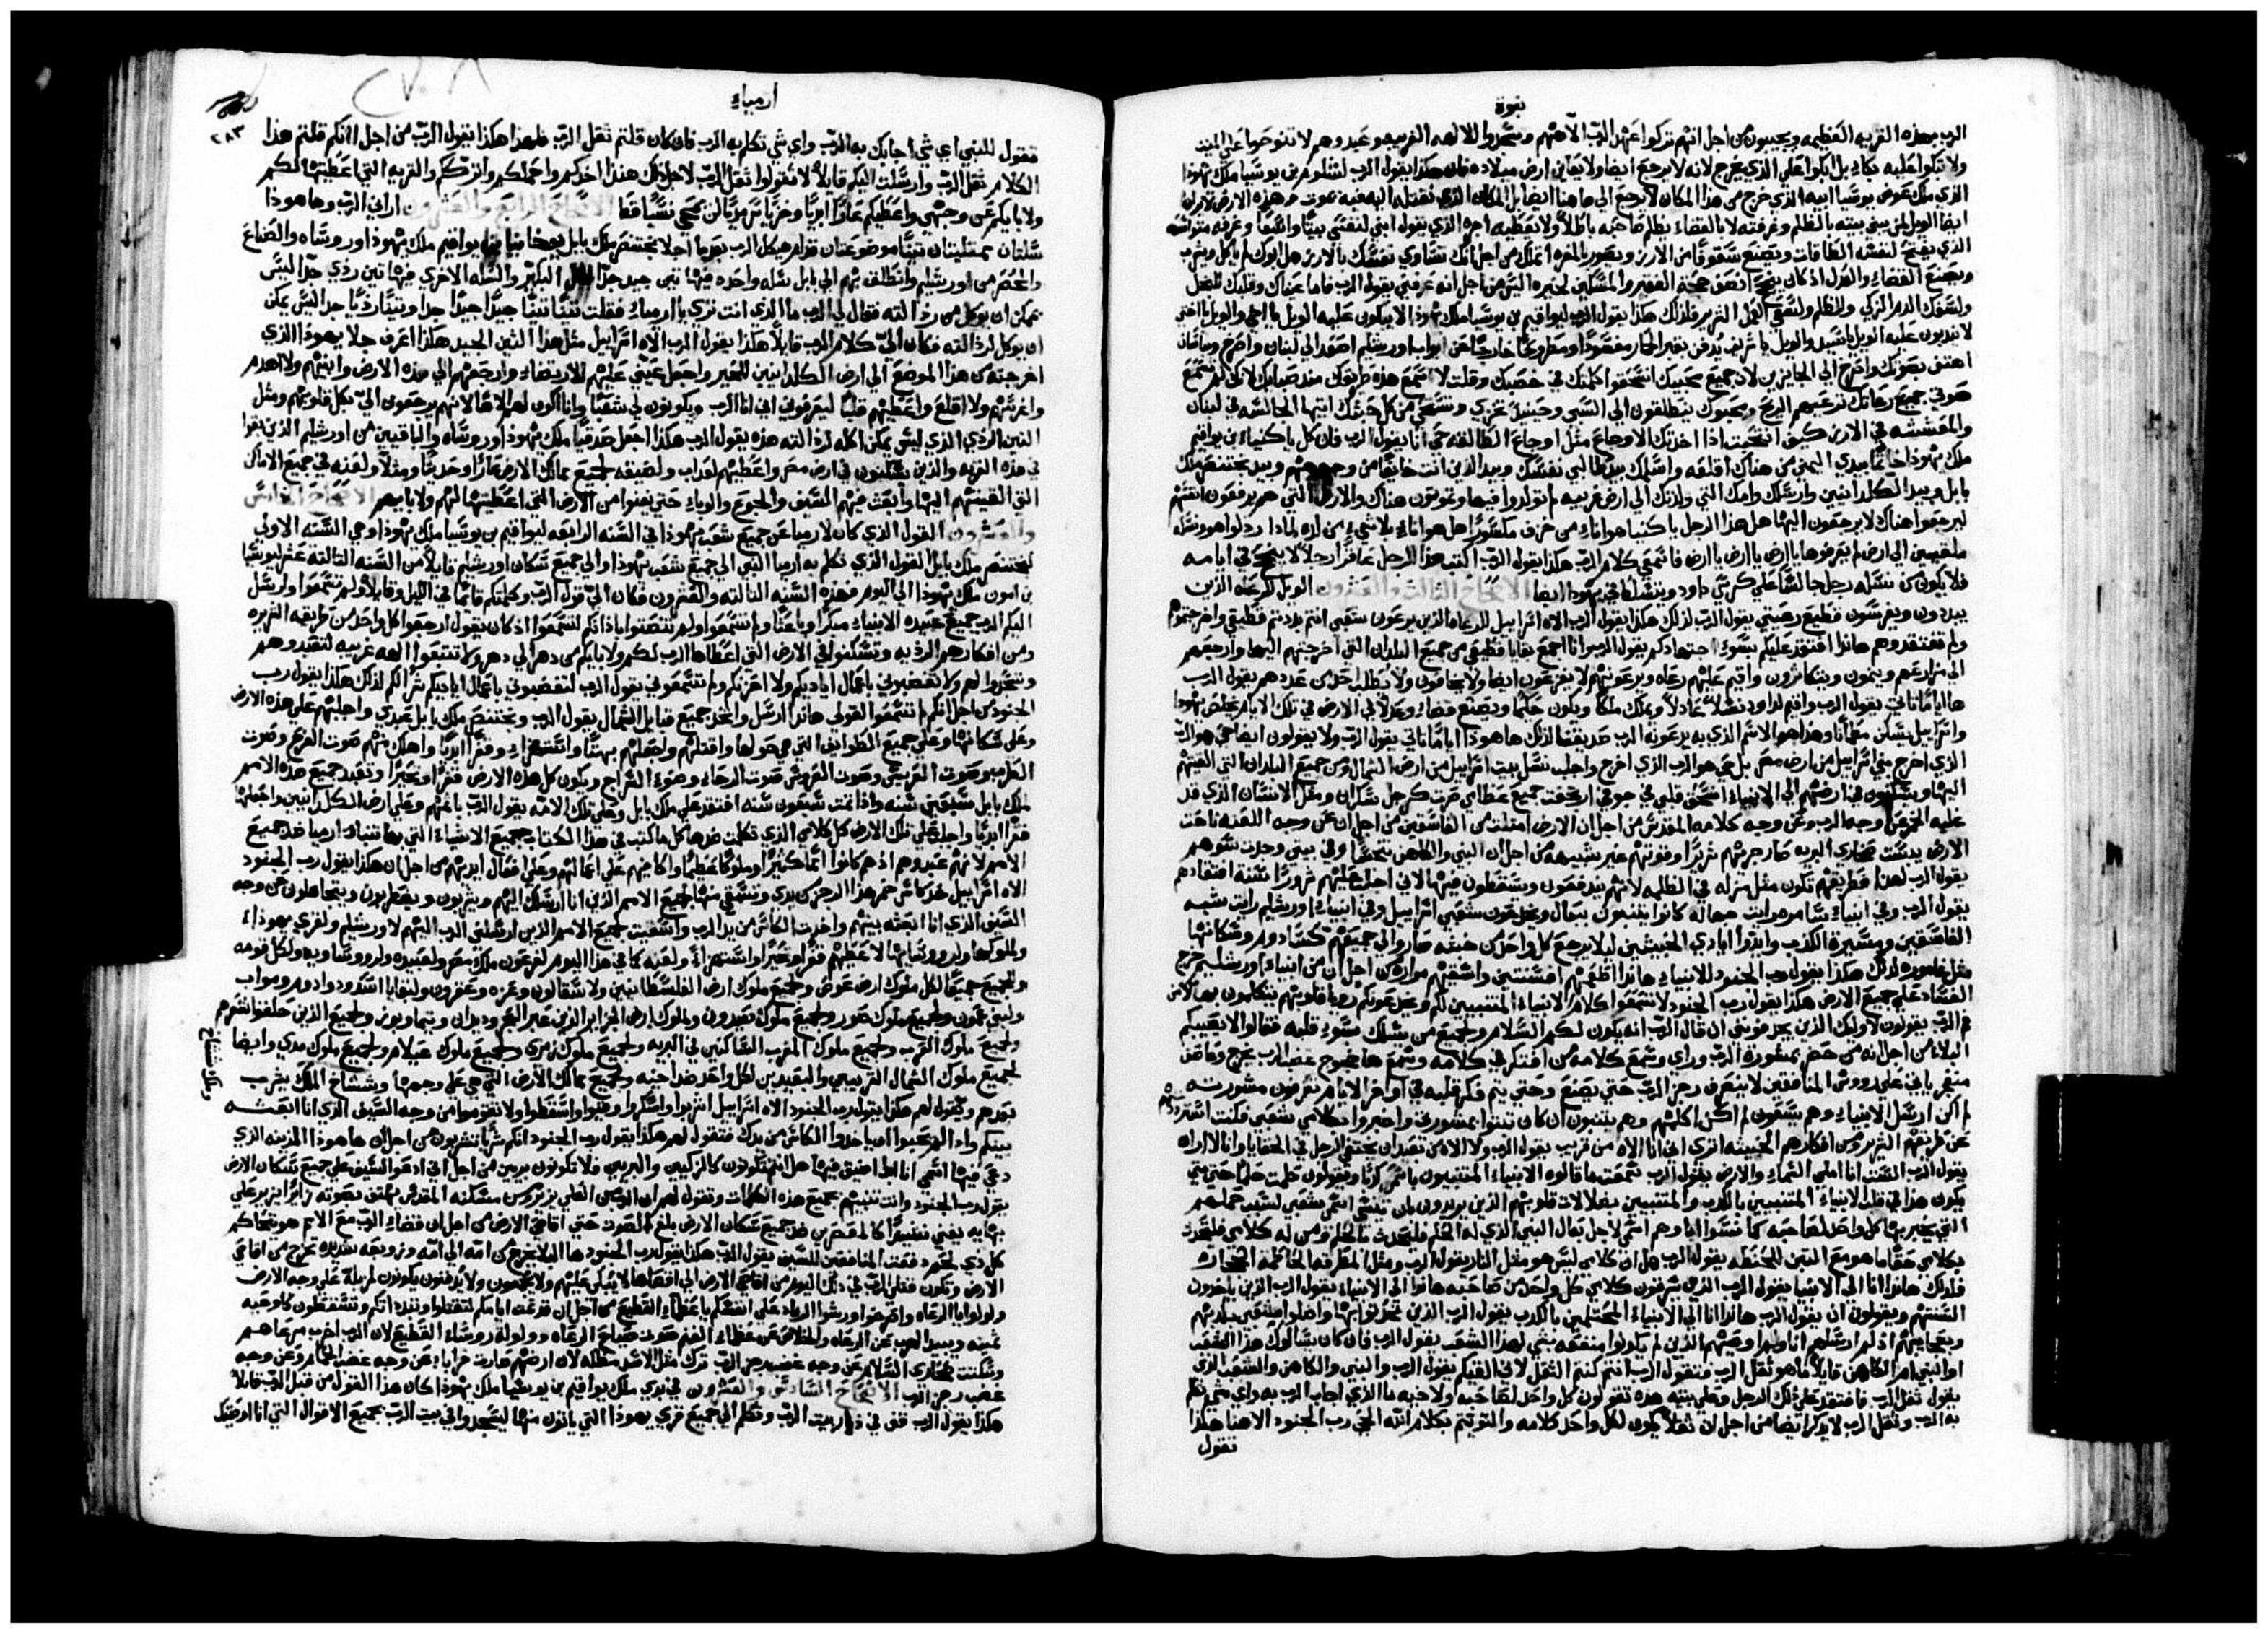 نبوة
الرب بهذه القريه العظيمه ويجيبون من اجل انهم تركوا عهد الرب الاههم وسجدوا للالهه الغريبه وعبدوهم لا تنوحوا على الميت
ولا تبكوا عليه بكاءً بل ابكوا على الذي يخرج لانه لا يرجع ايضا ولا يعاين ارض ميلاده فان هكذا يقول الرب لشلوم بن يوشيا ملك يهوذا
الذي ملك عوض يوشيا ابيه الذي خرج من هذا المكان لا يرجع الى هاهنا ايضا بل المكان الذي نقلته اليه فيه يموت وهذه الارض لا يراها
ايضا الويل لمن يبني بيته بالظلم وغرفه لا بالقضاء يظلم صاحبه باطلاً ولا يعطيه اجره الذي يقول ابني لنفسي بيتًا واسعًا وغرفه متواسعه
الذي يفتح لنفسه الطاقات ويصنع سقوفًا من الارز ويصور بالمغره اتملك من اجل انك تساوي نفسك بالارز هل ابوك لم ياكل ويشرب
ويصنع القضاء والعدل اذ كان ينجح اذ قضى حجة الفقير والمسكين لخيره اليس من اجل انه عرفني يقول الرب فاما عيناك وقلبك للبخل
ولسفك الدم الزكي وللظلم ولسعي العمل الشرير فلذلك هكذا يقول الرب ليواقيم بن يوشيا ملك يهوذا لا يبكون عليه الويل يا اخي والويل يا اختي
لا يندبون عليه الويل يا سيد والويل يا شريف يدفن بقبر الحمار مفصودًا ومطروحًا خارجًا عن ابواب اورشليم اصعدي الى لبنان واصرخي وبباشان
اعطي صوتك واصرخي الى الجايزين لان جميع محبيك انسحقوا كلمتك في خصبك وقلت لا اسمع هذه طريقك منذ صبايك لانك لم تسمعي
صوتي جميع رعاتك ترعيهم الريح ومحبوك ينطلقون الى السبي وحينئذ تخزي وتستحي من كل خبثك ايتها الجالسه في لبنان
والمعششه في الارز كيف انتحبت اذا اخذتك الاوجاع مثل اوجاع الطالقه حي انا يقول الرب فان كان يكنيا بن يواقيم
ملك يهوذا خاتمًا بيدي اليمنى من هناك اقلعه واسلمك بيد طالبي نفسك وبيد الذين انت خايفًا من وجوههم وبيد بختنصر ملك
بابل وبيد الكلدانيين وارسلك وامك التي ولدتك الى ارض غريبه لم تولدوا فيها وتموتون هناك والارض التي هم يرفعون انفسهم
ليرجعوا هناك لا يرجعون اليها هل هذا الرجل ياكنيا هو اناء من خزف مكسورًا هل هو اناء بلا شي من لذه لماذا رذلوا هو ونسله
ملقيين الى ارض لم يعرفوها يا ارض يا ارض يا ارض فاسمعي كلام الرب هكذا يقول الرب اكتب هذا الرجل عاقر رجلاً لا ينجح في ايامه
فلا يكون من نسله رجل جالسًا على كرسي داود ومتسلطًا في يهوذا ايضا الاصحاح الثالث والعشرون الويل للرعاه الذين
يبددون ويفرسون قطيع رعيتي يقول الرب لذلك هكذا يقول الرب الاه اسراييل للرعاه الذين يرعون شعبي انتم بددتم قطيعي واخرجتموهم
ولم تفتقدوهم هانذا افتقد عليكم بسوء اجتهادكم يقول الرب وانا اجمع بقايا قطيعي من جميع البلدان التي اخرجتهم اليها وارجعهم
الى مزارعهم وينمون ويتكاثرون واقيم عليهم رعاه ويرعونهم لا يفزعون ايضا ولا يخافون ولا يُطلب احد من عددهم يقول الرب
ها ايامًا تاتي يقول الرب واقيم لداود نسلاً عادلاً ويملك ملكًا ويكون حكيمًا ويصنع قضاءً وعدلاً في الارض في تلك الايام يخلص يهوذا
واسراييل يسكن مطمانًا وهذا هو الاسم الذي به يدعونه الرب صديقنا لذلك ها هوذا ايامًا تاتي يقول الرب ولا يقولون ايضا حي هو الرب
الذي اخرج بني اسراييل من ارض مصر بل حي هو الرب الذي اخرج واجلب نسل بيت اسراييل من ارض الشمال ومن جميع البلدان التي القيتهم
اليها ويسكنون في ارضهم الى الانبياء انسحق قلبي في جوفي ارتجفت جميع عظامي صرت كرجل سكران ومثل الانسان الذي قد
غلبه الخمر عن وجه الرب وعن وجه كلامه المقدس من اجل ان الارض امتلت من الفاسقين من اجل ان عن وجه اللعنه ناحت
الارض يبست صحاري البريه صار جريهم شريرًا وقوتهم غير شبيهه من اجل ان النبي والكاهن تنجسا وفي بيتي وجدت سوهم
يقول الرب لهذا طريقهم تكون مثل مزله في الظلمه لانهم يندفعون ويسقطون فيها لاني اجلب عليهم شرورًا سنة افتقادهم
يقول الرب وفي انبياء سامره رايت جهاله كانوا يتنبون ببعال ويخدعون شعبي اسراييل وفي انبياء اورشليم رايت شبه
الفاسقين ومسيرة الكذب وايدوا ايادي الخبيثين ليلا يرجع كل واحد من خبثه صاروا لي جميعهم كسادوم وسكانها
مثل غاموره لذلك هكذا يقول رب الجنود للانبياء هانذا اطعمهم افسنتين واسقيهم مراره من اجل ان من انبياء اورشليم خرج
الفساد على جميع الارض هكذا يقول رب الجنود لا تسمعوا كلام الانبياء المتنبيين لكم ويخدعونكم رويا قلوبهم يتكلمون بها لا من
فم الرب يقولون لاولئك الذين يجدفونني ان قال الرب انه يكون لكم السلام ولجميع من يسلك بسوء قلبه فقالوا لا يصيبكم
البلاء من اجل انه من حضر بمشورة الرب وراى وسمع كلامه من افتكر في كلامه وسمع ها خروج غضب الرب يخرج وعاصف
منفجر ياتي على رووس المنافقين لا ينصرف رجز الرب حتى يصنع وحتى يتم فكر قلبه في اواخر الايام تعرفون مشورته
لم اكن ارسل الانبياء وهم يسعون لم اكن اكلمهم وهم يتنبون ان كان ثبتوا بمشورتي واخبروا بكلامي شعبي فكنت اردهم
عن طريقهم الشرير ومن افكارهم الخبيثه اترى اني انا الاله من قريب يقول الرب ولا الاه من بعيد ان يختفي الرجل في الخفايا وانا لا اراه
يقول الرب الست انا املى السماء والارض يقول الرب سمعت ما قالوه الانبياء المتنبيون باسمي كذبًا ويقولون حلمت حلمًا حتى متى
يكون هذا في قلب الانبياء المتنبيين بالكذب والمتنبيين بضلالات قلوبهم الذين يريدون بان ينسى اسمي شعبي لسبب حملهم
التي يخبر بها كل واحد لصاحبه كما نسوا اباوهم اسمي لاجل بعال النبي الذي له الحلم فليحدث بالحلم ومن له كلامي فليتحدث
بكلامي حقًا ما هو مع التبن للحنطه يقول الرب هل ان كلامي ليس هو مثل النار يقول الرب ومثل المطرقه الحاطمة الحجاره
فلذلك هانذا انا الى الانبيا يقول الرب الذين يسرقون كلامي كل واحد من صاحبه هانذا الى الانبياء يقول الرب الذين ياخذون
السنتهم ويقولون ان يقول الرب هانذا انا الى الانبياء المحتلمين بالكذب يقول الرب الذين تحدثوا بها واضلوا شعبي بكذبهم
وبعجايبهم اذ لم ارسلهم انا ولم اوصيهم الذين لم يكونوا منفعه بشي لهذا الشعب يقول الرب فان كان سالوك هذا الشعب
او النبي ام الكاهن قايلاً ما هو ثقل الرب فتقول الرب انتم كنتم الثقل لاني القيكم يقول الرب والنبي والكاهن والشعب الذي
يقول ثقل الرب فافتقد على ذلك الرجل وعلى بيته هذه تقولون كل واحد لصاحبه ولاخيه ما الذي اجاب الرب به واي شي تكلم
به الرب وثقل الرب لا يذكر ايضا من اجل ان ثقلاً يكون لكل واحد كلامه والتويتم بكلام الله الحي رب الجنود الاهنا هكذا
تقول
ارمياء
٢٨٣
تقول للنبي اي شي اجابك به الرب واي شي تكلم به الرب فان كان قلتم ثقل الرب فلهذا هكذا يقول الرب من اجل انكم قلتم هذا
الكلام ثقل الرب وارسلت اليكم قايلاً لا تقولوا ثقل الرب لاجل ذلك هنذا اخذكم واحملكم واترككم والقريه التي اعطيتها لكم
ولاباكم عن وجهي واعطيكم عارًا ابديًا وخزيًا سرمديًا لن يمحى نسيًا قط الاصحاح الرابع والعشرون اراني الرب وها هوذا
سلتان ممتليتان تينًا موضوعتان قدام هيكل الرب بعد ما اجلا بختنصر ملك بابل يوخانيا بن يواقيم ملك يهوذا وروساه والصناع
والحصر من اورشليم وانطلقت بهم الى بابل سله واحده فيها تين جيد جدًا مثل البكير والسله الاخرى فيها تين ردي جدًا ليس
يمكن ان يوكل من رذالته فقال لي الرب ما الذي انت ترى يا ارمياء فقلت تينًا تينًا جيدًا جيدًا جدا وتينًا رديًا جدا ليس يمكن
ان يوكل لرذالته فكان الي كلام الرب قايلاً هكذا يقول الرب الاه اسراييل مثل هذا التين الجيد هكذا اعرف جلا يهوذا الذي
اخرجته من هذا الموضع الى ارض الكلدانيين للخير واجعل عيني عليهم للارتضاء وارجعهم الى هذه الارض وابنيهم ولا اهدم
واغرسهم ولا اقلع واعطيهم قلبًا ليعرفوني اني انا الرب ويكونون لي شعبًا وانا اكون لهم الاهًا لانهم يرجعون الي بكل قلوبهم ومثل
التين الردي الذي ليس يمكن اكله لرذالته هذه يقول الرب هكذا اجعل صدقيا ملك يهوذا وروساه والباقيين من اورشليم الذين بقوا
في هذه القريه والذين يسكنون في ارض مصر واعطيهم لعذاب ولضيقه لجميع ممالك الارض عارًا وحديثًا ومثلاً ولعنه في جميع الاماكن
التي القيتهم اليها وابعث فيهم السيف والجوع والوباء حتى يفنوا من الارض التي اعطيتها لهم ولابايهم الاصحاح الخامس
والعشرون القول الذي كان لارميا عن جميع شعب يهوذا في السنه الرابعه ليواقيم بن يوشيا ملك يهوذا وهي السنه الاولى
لبختنصر ملك بابل القول الذي تكلم به ارميا النبي الى جميع شعب يهوذا والى جميع سكان اورشليم قايلاً من السنه الثالثه عشر ليوشيا
بن امون ملك يهوذا الى اليوم فهذه السنه الثالثه والعشرون فكان الي قول الرب وكلمتكم قايمًا في الليل وقايلاً ولم تسمعوا وارسل
اليكم الرب جميع عبيده الانبياء مبكرًا وباعثًا ولم تسمعوا ولم تنصتوا باذانكم لتسمعوا اذ كان يقول ارجعوا كل واحد من طريقه الشريره
ومن افكارهم الرديه وتسكنوا في الارض التي اعطاها الرب لكم ولاباكم من دهر الى دهر ولا تتبعوا الهه غريبه لتعبدوهم
وتسجدوا لهم ولا تغضبوني باعمال اياديكم ولا احزنكم ولم تسمعوني يقول الرب لتغضبوني باعمال اياديكم شرًا لكم لذلك هكذا يقول رب
الجنود من اجل انكم لم تسمعوا لقولي هانذا ارسل واخذ جميع قبايل الشمال يقول الرب وبختنصر ملك بابل عبدي واجلبهم على هذه الارض
وعلى سكانها وعلى جميع الطوايف التي في حولها واقتلهم واجعلهم بهتًا واستهزاء وقفرًا ابديًا واهلك منهم صوت الفرح وصوت
الطرب وصوت العريس وصوت العروس صوت الرحاء وضوء السراج وتكون كل هذه الارض قفرًا وتحيرًا وتعبد جميع هذه الامم
ملك بابل سبعين سنه واذا تمت سبعون سنه افتقد على ملك بابل وعلى تلك الامه يقول الرب باثمهم وعلى ارض الكلدانيين واجعلها
قفرًا ابديًا واجلب على تلك الارض كل كلامي الذي تكلمت ضدها كل ما كتب في هذا الكتاب جميع الاشياء التي بها تنباء ارميا ضد جميع
الامم لانهم عبدوهم اذ هم كانوا اممًا كثيرًا وملوكًا عظماء واكافيهم على اعمالهم وعلى فعال ايديهم من اجل ان هكذا يقول رب الجنود
الاه اسراييل خذ كاس خمر هذا الرجز من يدي وتسقي منها جميع الامم الذين انا ارسلك اليهم ويشربون ويضطربون ويتجاهلون من وجه
السيف الذي انا ابعثه بينهم واخذت الكاس من يد الرب واسقيت جميع الامم الذين ارسلني الرب اليهم لاورشليم ولقرى يهوذا
ولملوكها ولروسايها لاعطيهم قفرًا وتحيرًا واستهزاءً ولعنه كما في هذا اليوم لفرعون ملك مصر ولعبيده ولروساوه ولكل قومه
وللجميع جميعًا لكل ملوك ارض عوض ولجميع ملوك ارض الفلسطانيين ولاسقالون وغزه وعقرون ولبقايا اسدود وادوم ومواب
ولبني عمون ولجميع ملوك صور ولجميع ملوك صيدون وملوك ارض الجزاير الذين عبر البحر وديدان وتيما وبوز ولجميع الذين حلقوا شعورهم
ولجميع ملوك العرب ولجميع ملوك المغرب الساكنين في البريه ولجميع ملوك زمري ولجميع ملوك عيلام ولجميع ملوك مدي وايضا
لجميع ملوك الشمال القريبين والبعيدين لكل واحد ضد اخيه ولجميع ممالك الارض التي هي على وجهها وششاخ الملك يشرب
ملك ششاخ
بعدهم وتقول لهم هكذا يقول رب الجنود الاه اسراييل اشربوا واسكروا وتقيوا واسقطوا ولا تقوموا من وجه السيف الذي انا ابعثه
بينكم واذا لم يحبوا ان ياخذوا الكاس من يدك فتقول لهم هكذا يقول رب الجنود انكم شربًا تشربون من اجل ان ها هوذا المدينه الذي
دعي فيها اسمي انا ابدا اضيق فيها هل انتم تكونون كالزكيين والبريين فلا تكونون بريين من اجل اني ادعو السيف على جميع سكان الارض
يقول رب الجنود وانت تتنبيهم بجميع هذه الكلمات وتقول لهم ان الرب من العلى يزير ومن مسكنه المقدس يعطي صوته زايرًا يزير على
بهايه يغني تغنيمًا كالمعصرين ضد جميع سكان الارض بلغ الصوت حتى اقاصي الارض من اجل ان قضاء الرب مع الامم هو يتحاكم
كل ذي لحم دفعت المنافقين للسيف يقول الرب هكذا يقول رب الجنود ها البلا يخرج من امه الى امه وزوبعه شديده تخرج من اقاصي
الارض وتكون قتلى الرب في ذلك اليوم من اقاصي الارض الى اقصاها لا يُبكى عليهم ولا يجمعون ولا يُدفنون يكونون لمزبلة على وجه الارض
ولولوا ايا الرعاه واصرخوا ورشوا الرماد على انفسكم يا عظماء القطيع من اجل ان قد تمت ايامكم لتقتلوا وتبددنكم وتسقطون كاوعيه
ثمينه ويبيد الهرب عن الرعاه والخلاص عن عظماء الغنم صوت صياح الرعاه وولولة روساء القطيع لان الرب اخرب مرعاهم
وسكنت صحاري السلام عن وجه غضب رجز الرب ترك مثل الاسد مظله لان ارضهم صارت خرابا عن وجه غضب الحمام وعن وجه
غضب رجز الرب الاصحاح السادس والعشرون في بدي ملك يواقيم بن يوشيا ملك يهوذا كان هذا القول من قبل الرب قايلاً
هكذا يقول الرب قف في دار بيت الرب وتكلم الى جميع قرى يهوذا التي ياتون منها ليسجدوا في بيت الرب بجميع الاقوال التي انا اوصيتك